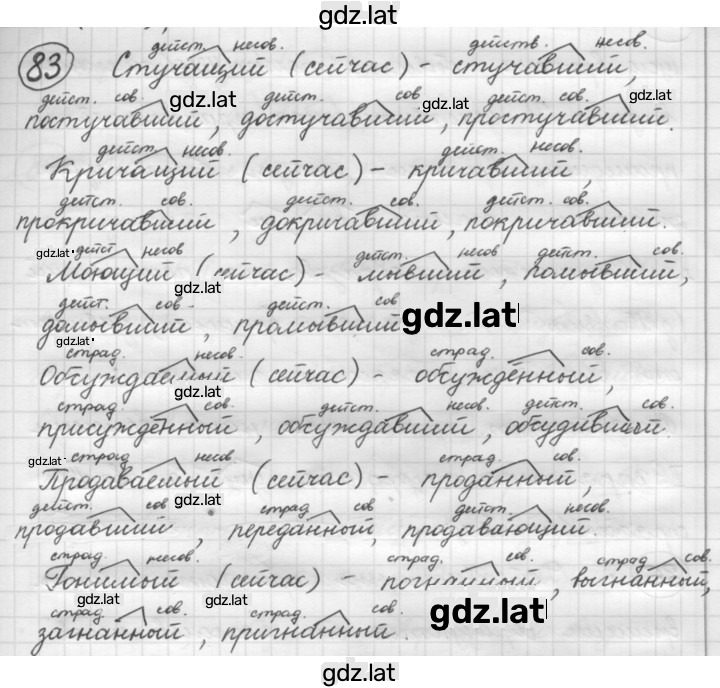 gdz.lat
дейст. несов. действ. несов.
83 Стучащий (сейчас) - стучавший,
дейст. сов. gdz.lat дейст. сов gdz.lat дейст. сов. gdz.lat
постучавший, достучавший, простучавший.
дейст. несов. дейст. несов.
Кричащий (сейчас) - кричавший,
дейст. сов. дейст. сов. дейст. сов.
прокричавший, докричавший, покричавший.
gdz.lat дейст несов дейст. несов дейст. сов.
Моющий (сейчас) - мывший, помывший,
gdz.lat
дейст. сов. дейст. сов
домывший, промывший gdz.lat
gdz.lat
страд. несов. страд. сов.
Обсуждаемый (сейчас) - обсуждённый,
gdz.lat
страд. сов. дейст. несов. дейст. сов.
присуждённый, обсуждавший, обсудивший.
gdz.lat страд несов. страд. сов.
Продаваемый (сейчас) - проданный,
gdz.lat
дейст. сов страд. сов дейст. несов.
продавший, переданный, продавающий.
страд. несов. страд. сов. страд. сов.
Гонимый (сейчас) - погнанный, выгнанный,
gdz.lat gdz.lat gdz.lat
страд. сов. страд. сов.
загнанный, пригнанный.
gdz.lat